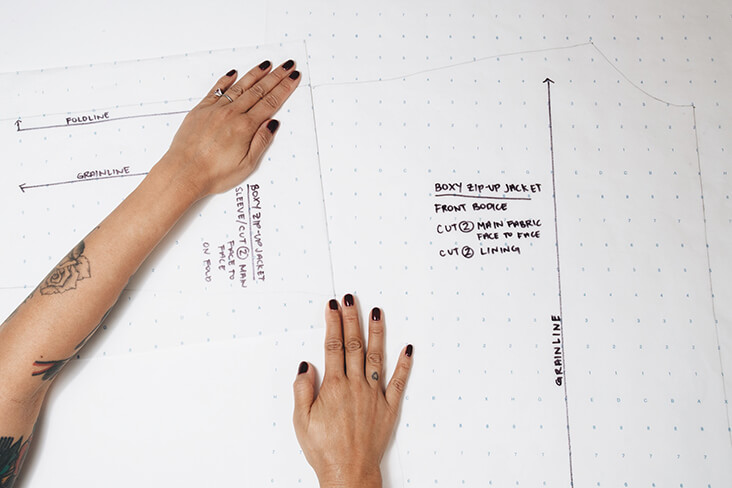 FOLDLINE
GRAINLINE
BOXY ZIP-UP JACKET
SLEEVE/CUT 2 MAIN
FACE TO
FACE
ON FOLD
BOXY ZIP-UP JACKET
FRONT BODICE
CUT 2 MAIN FABRIC
FACE TO FACE
CUT 2 LINING
GRAINLINE